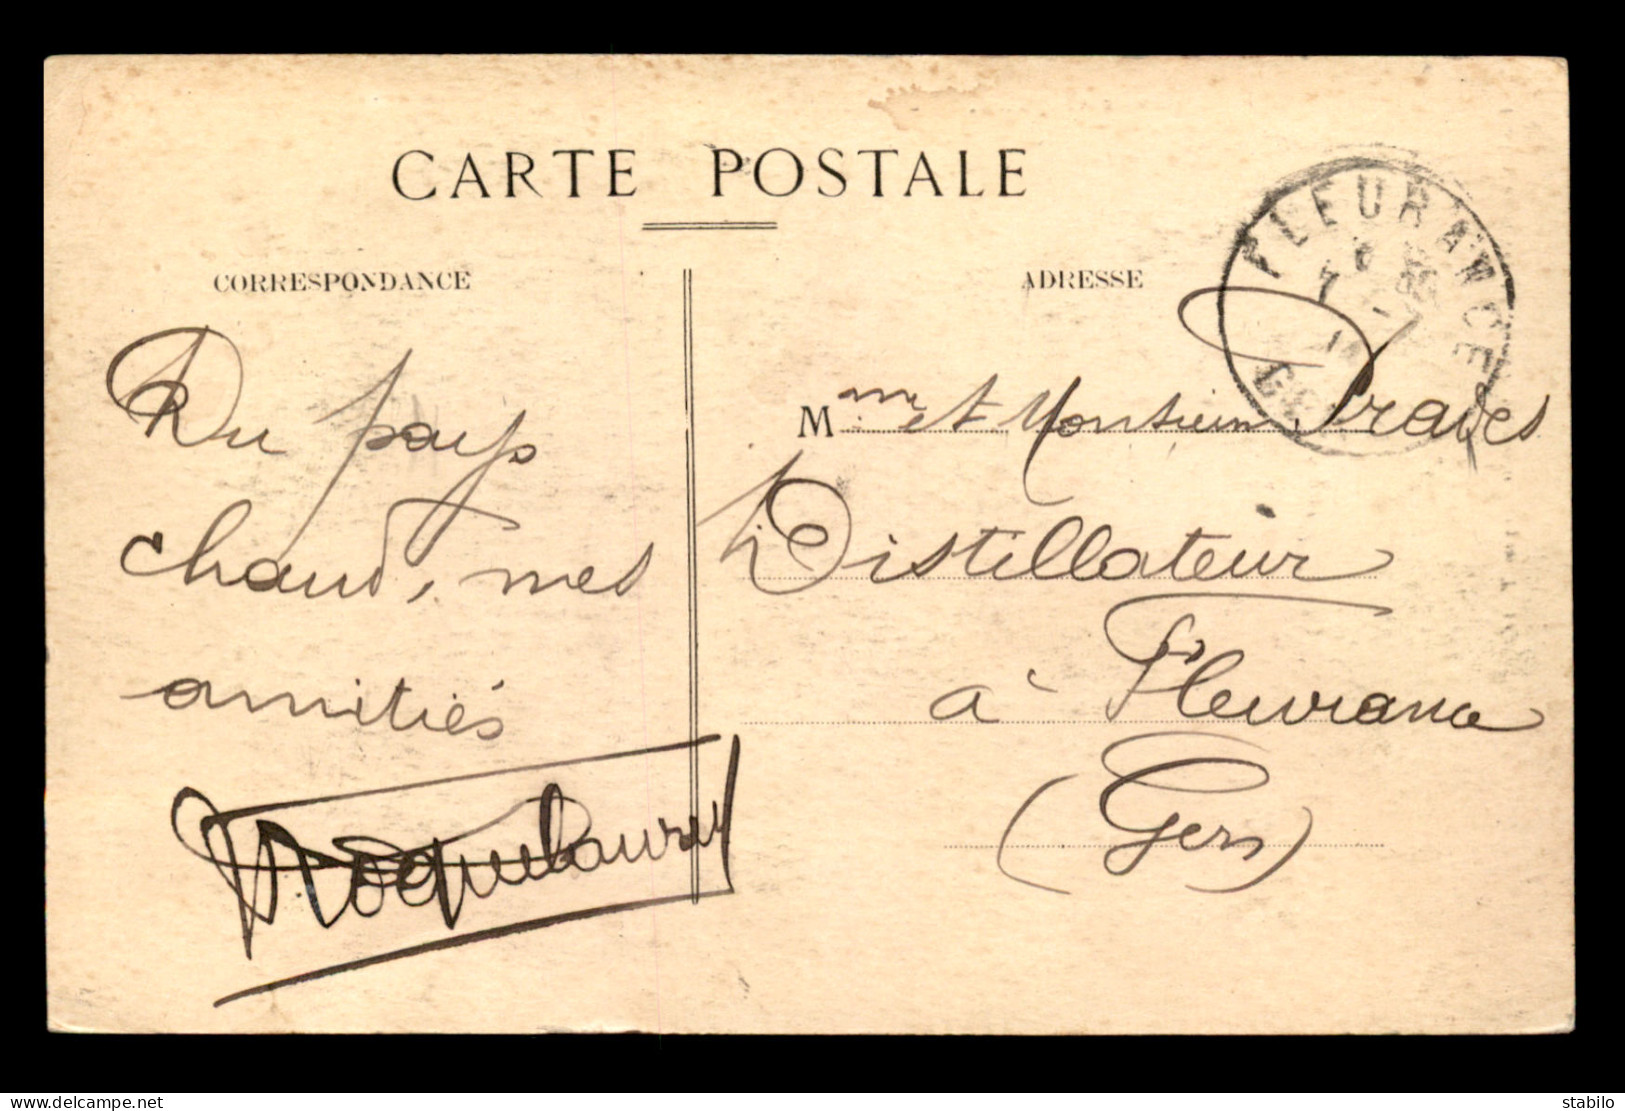 CARTE POSTALE
CORRESPONDANCE
ADRESSE
FLEURANCE
Du pays
chaud, mes
amitiés
Mme et Monsieur
Distillateur
à Fleurance
(Gers)
delcampe.net
stabilo